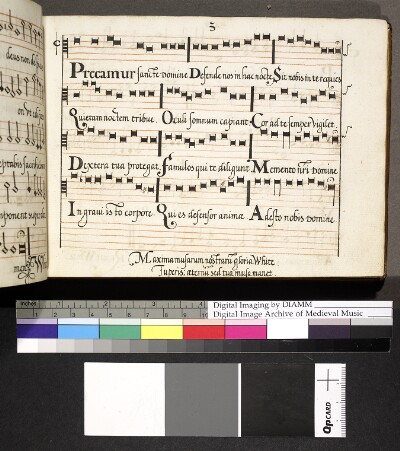 3
Precamur sancte domine Defende nos in hac nocte Sit nobis in te requies
Quietam noctem tribue. Oculi somnum capiant Cor ad te semper vigilet
Dextera tua protegat. famulos qui te diligunt. Memento nri domine
In graui isto corpore Qui es defensor animæ Adesto nobis domine
Maxima musarum nostrarum gloria White
Tu peris: æternum sed tua musa manet.
inches 1 2 3 4
Digital Imaging by DIAMM
Digital Image Archive of Medieval Music
QPCARD